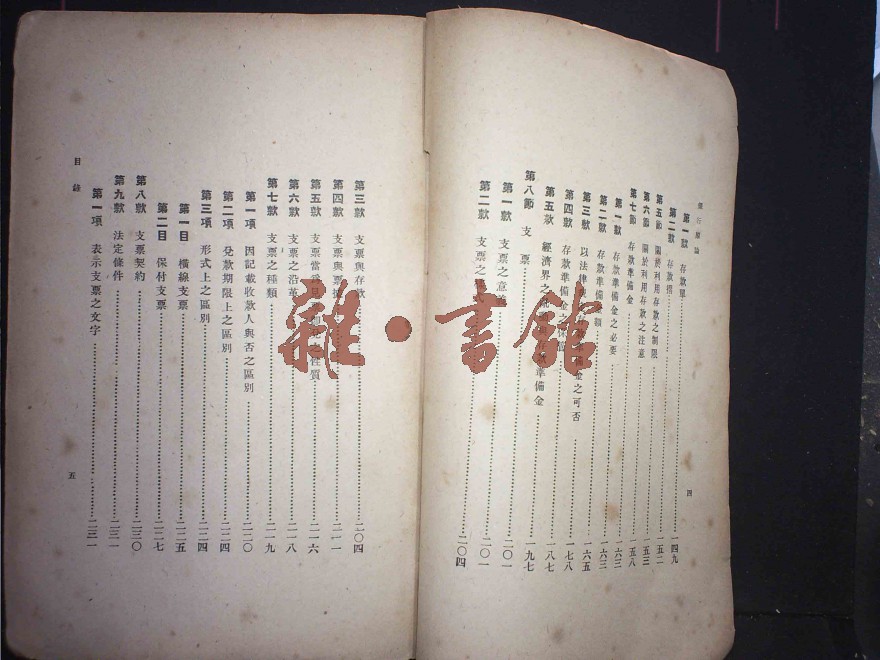 論
第一款 存款單 一四九
第二款 存款摺 一五二
第五節 關於利用存款之制限 一五三
第六節 關於利用存款之注意 一五八
第七節 存款準備金 一六三
第一款 存款準備金之必要 一六三
第二款 存款準備 類 一六五
第三款 以法律 準備金之可否 一七八
第四款 存款準備金之 一八七
第五款 經濟界之 存款準備金
第八節 支票 一九七
第一款 支票之意 二〇一
第二款 支票之 二〇四
四
第三款 支票與存款 二〇四
第四款 支票與票據 二一一
第五款 支票當爲 性質 二一六
第六款 支票之沿革 二一八
第七款 支票之種類 二一九
第一項 因記載收款人與否之區別 二二〇
第二項 兌款期限上之區別 二二四
第三項 形式上之區別 二二四
第一目 橫線支票 二二五
第二目 保付支票 二二七
第八款 支票契約 二三〇
第九款 法定條件 二三一
第一項 表示支票之文字 二三一
目錄
五
雜·書館